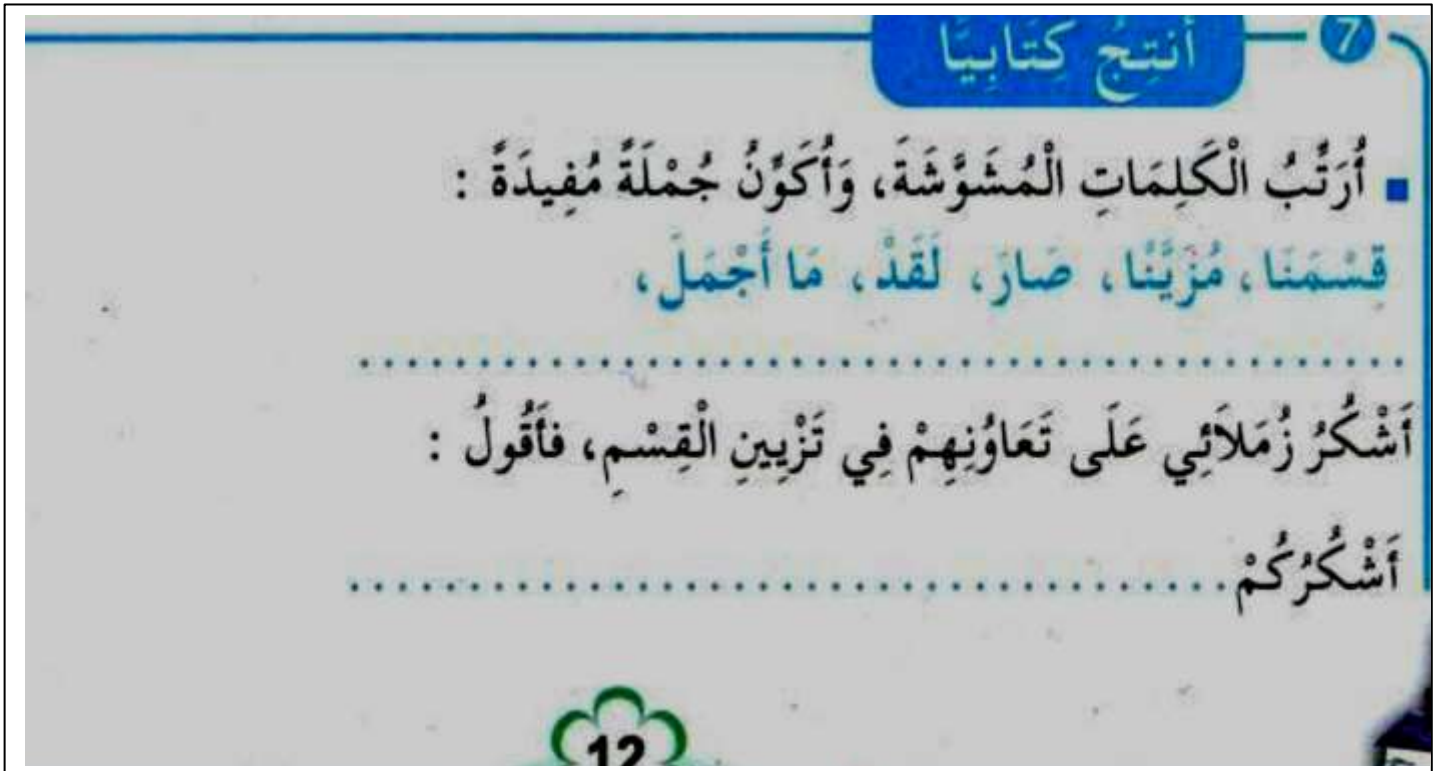 7 أُنْتِجُ كِتَابِيًّا
▪ أُرَتِّبُ الْكَلِمَاتِ الْمُشَوَّشَةَ، وَأُكَوِّنُ جُمْلَةً مُفِيدَةً :
قِسْمَنَا، مُزَيَّنًا، صَارَ، لَقَدْ، مَا أَجْمَلَ،
................................................
أَشْكُرُ زُمَلَائِي عَلَى تَعَاوُنِهِمْ فِي تَزْيِينِ الْقِسْمِ، فَأَقُولُ :
أَشْكُرُكُمْ........................................
12